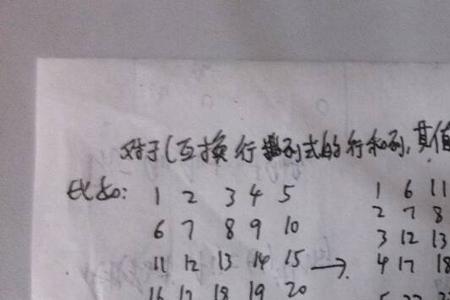 对于(互换行列式的行和列,其值
比如: 1 2 3 4 5 1 6 11
6 7 8 9 10 2 7 8
11 12 13 14 15 → 3 12 13
16 17 18 19 20 4 17 18